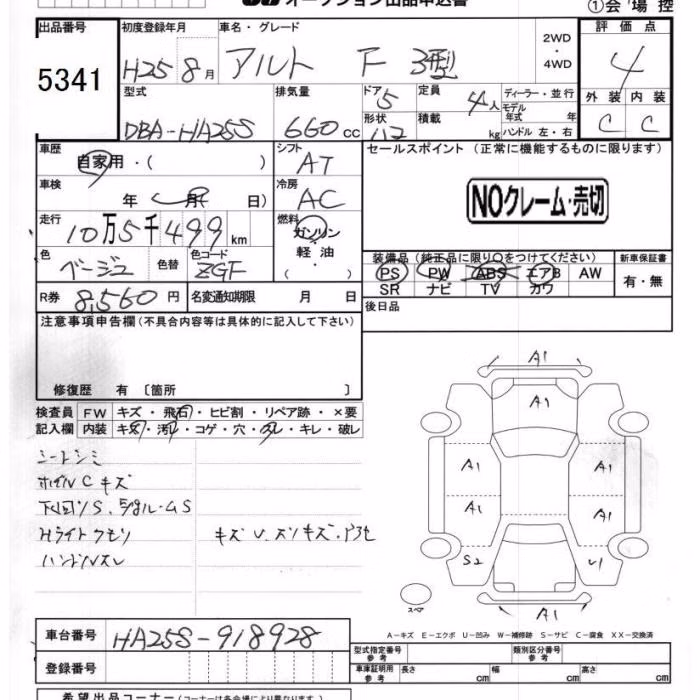 オークション出品申込書
①会場控
出品番号 5341
初度登録年月 H25 8月
車名・グレード アルト F 3型
2WD・4WD
評価点 4
外装 C 内装 C
型式 DBA-HA25S
排気量 660cc
ドア 5 形状
定員 4人 積載 kg
ディーラー・並行
モデル年式 年
ハンドル 左・右
車歴 自家用・( )
シフト AT
セールスポイント (正常に機能するものに限ります)
車検 年 月 日)
冷房 AC
NOクレーム・売切
走行 10万5千499km
燃料 ガソリン・軽油・( )
色 ベージュ 色替 色コード ZGF
装備品 (純正品に限り○をつけてください) 新車保証書
PS PW ABS エアB AW 有・無
SR ナビ TV カワ
R券 8,560円 名変通知期限 月 日
後日品
注意事項申告欄 (不具合内容等は具体的に記入して下さい)
修復歴 有 〔箇所 〕
検査員記入欄
FW キズ・飛石・ヒビ割・リペア跡・×要
内装 キズ・汚レ・コゲ・穴・スレ・キレ・破レ
シートシミ
ホイルCキズ
下回リS、
Hライトクモリ
キズU、スリキズ、
ハンドルスレ
A1
A1
A1 A1
A1 A1
S2 U1
A1
スペア
A-キズ E-エクボ U-凹み W-補修跡 S-サビ C-腐食 XX-交換済
車台番号 HA25S-918928
登録番号
型式指定番号 参考 類別区分番号 参考
車庫証明用 参考 長さ cm 幅 cm 高さ cm
希望出品コーナー